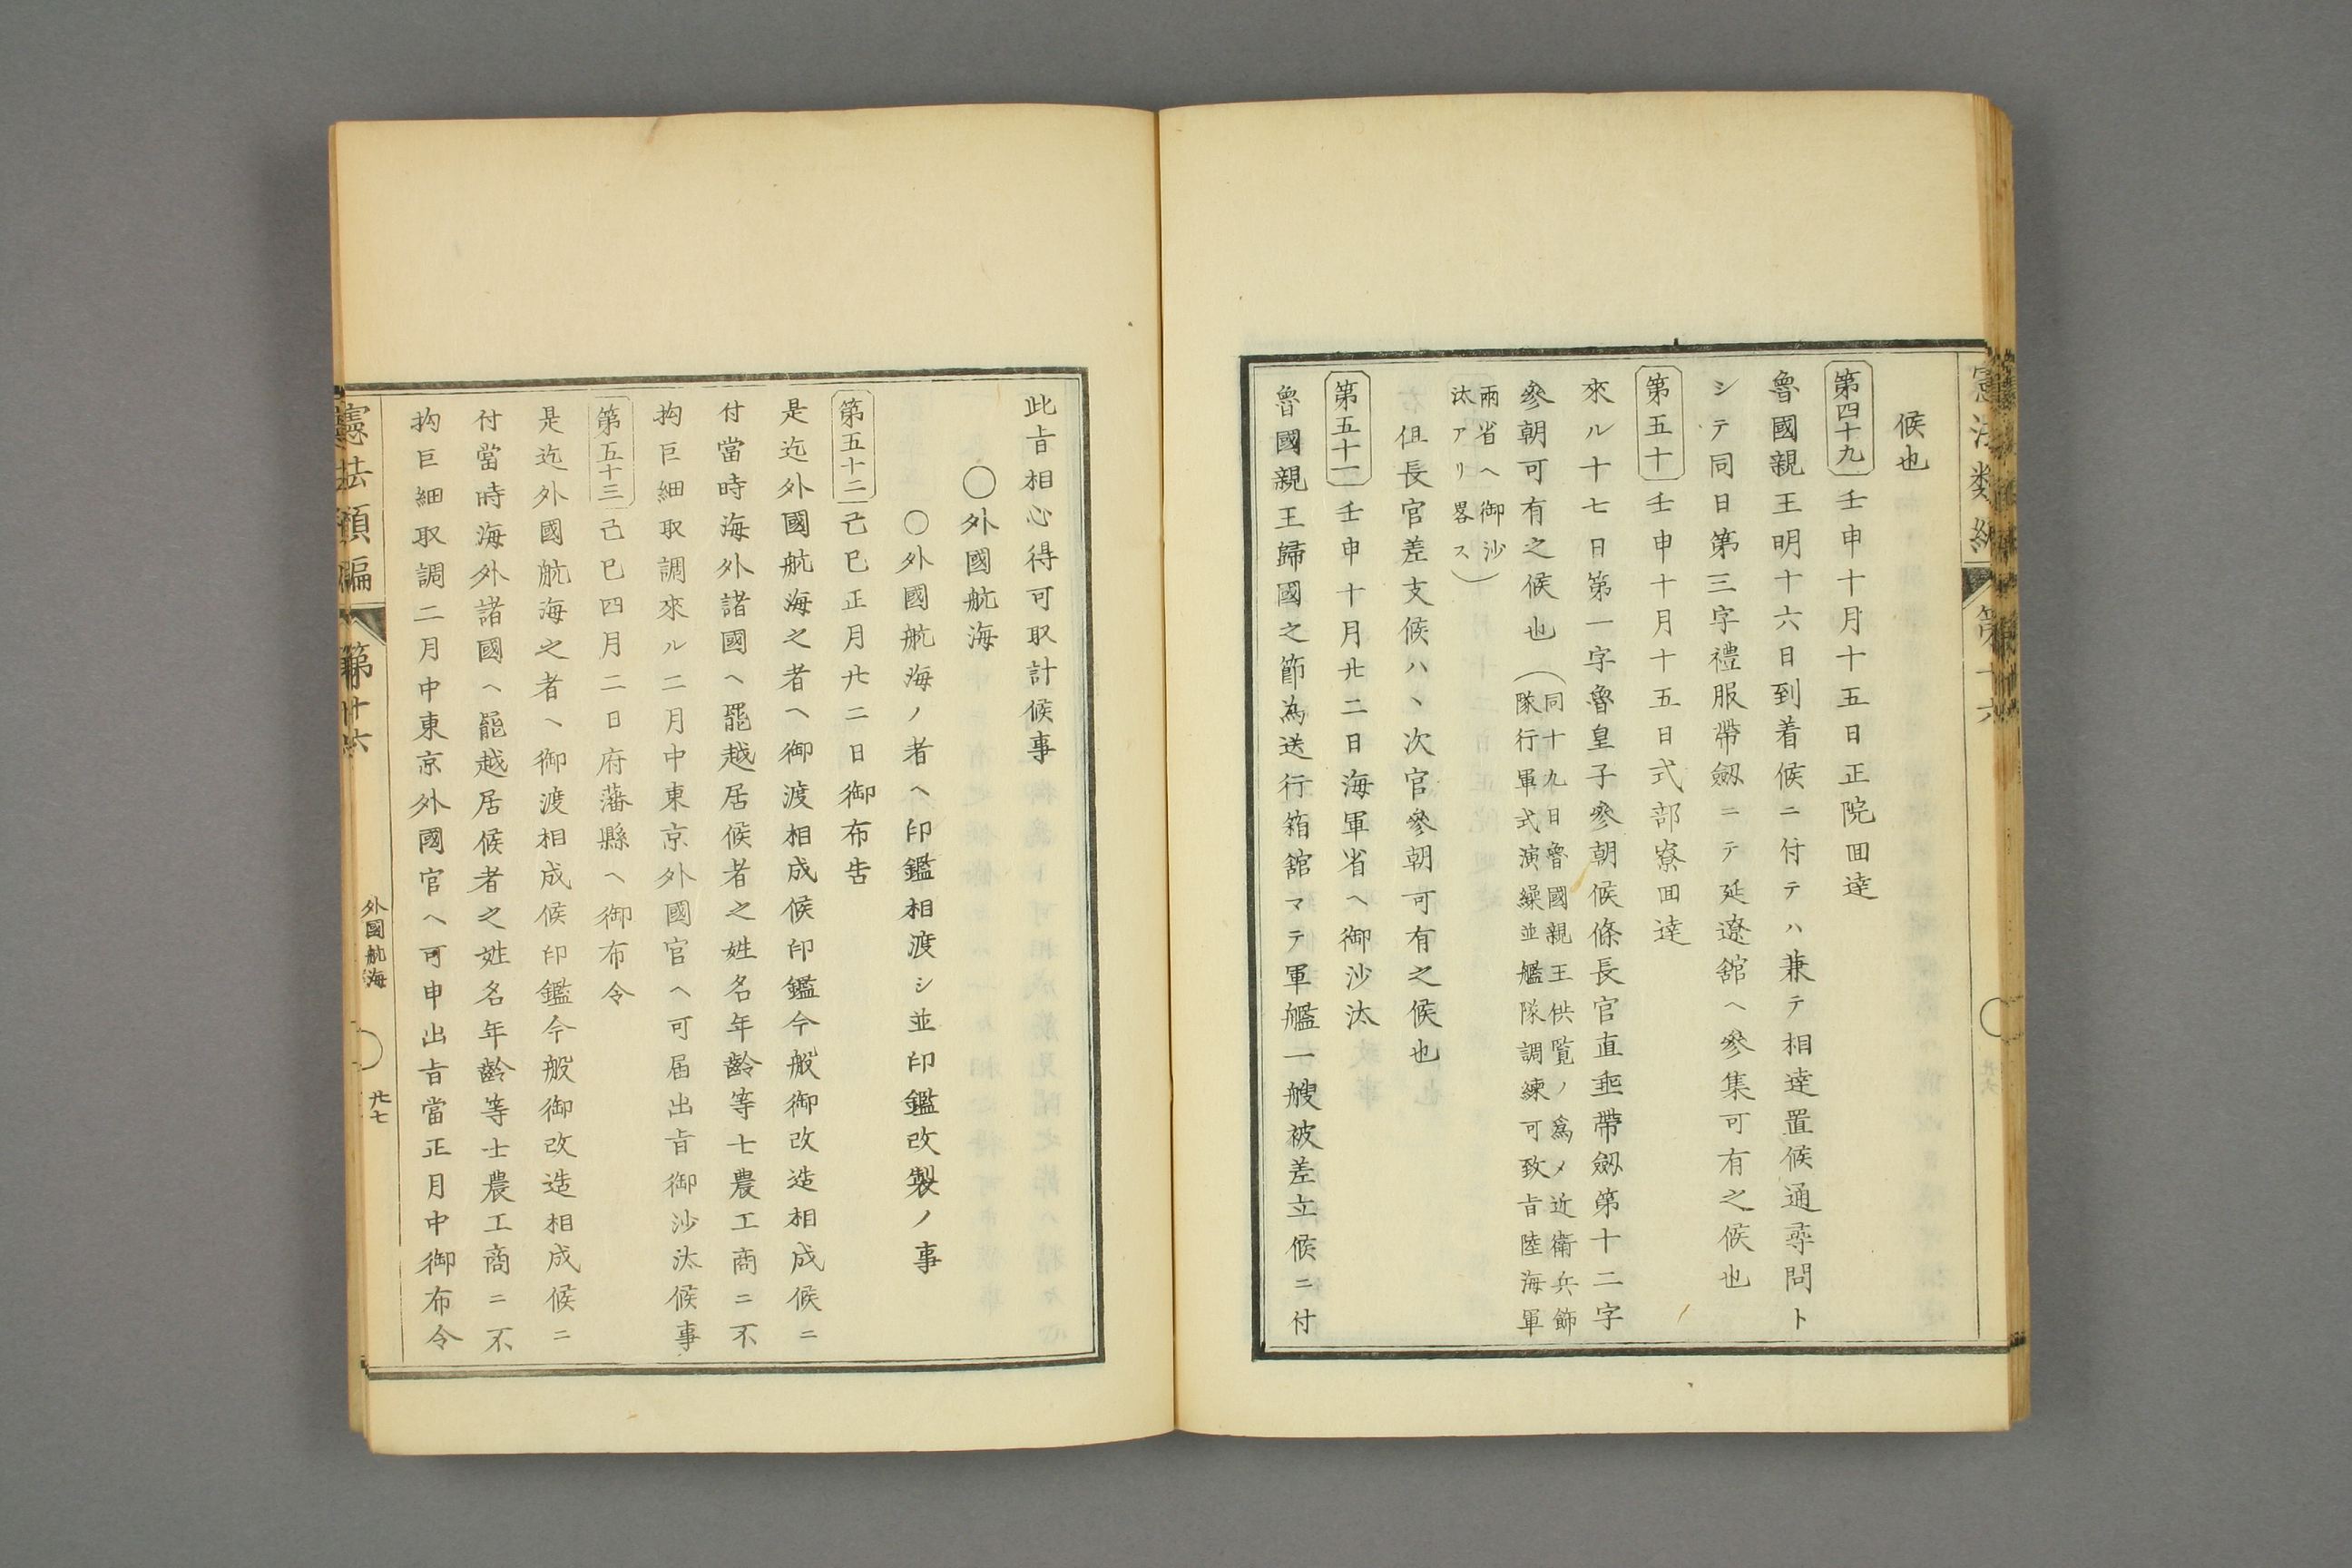 候也
第四十九 壬申十月十五日正院回達
魯國親王明十六日到着候ニ付テハ兼テ相達置候通尋問ト
シテ同日第三字禮服帶劔ニテ延遼舘ヘ參集可有之候也
第五十 壬申十月十五日式部寮回達
來ル十七日第一字魯皇子參朝候條長官直垂帶劔第十二字
參朝可有之候也（同十九日魯國親王供覧ノ爲メ近衛兵飾
隊行軍式演繰並艦隊調練可致旨陸海軍
兩省ヘ御沙
汰アリ畧ス）
但長官差支候ハヽ次官參朝可有之候也
第五十一 壬申十月廿二日海軍省ヘ御沙汰
魯國親王歸國之節為送行箱舘マテ軍艦一艘被差立候ニ付
憲法類編 第十六
此旨相心得可取計候事
〇外國航海
〇外國航海ノ者ヘ印鑑相渡シ並印鑑改製ノ事
第五十二 己巳正月廿二日御布告
是迄外國航海之者ヘ御渡相成候印鑑今般御改造相成候ニ
付當時海外諸國ヘ罷越居候者之姓名年齡等士農工商ニ不
拘巨細取調來ル二月中東京外國官ヘ可届出旨御沙汰候事
第五十三 己巳四月二日府藩縣ヘ御布令
是迄外國航海之者ヘ御渡相成候印鑑今般御改造相成候ニ
付當時海外諸國ヘ罷越居候者之姓名年齡等士農工商ニ不
拘巨細取調二月中東京外國官ヘ可申出旨當正月中御布令
憲法類編 第十六 外國航海 廿七